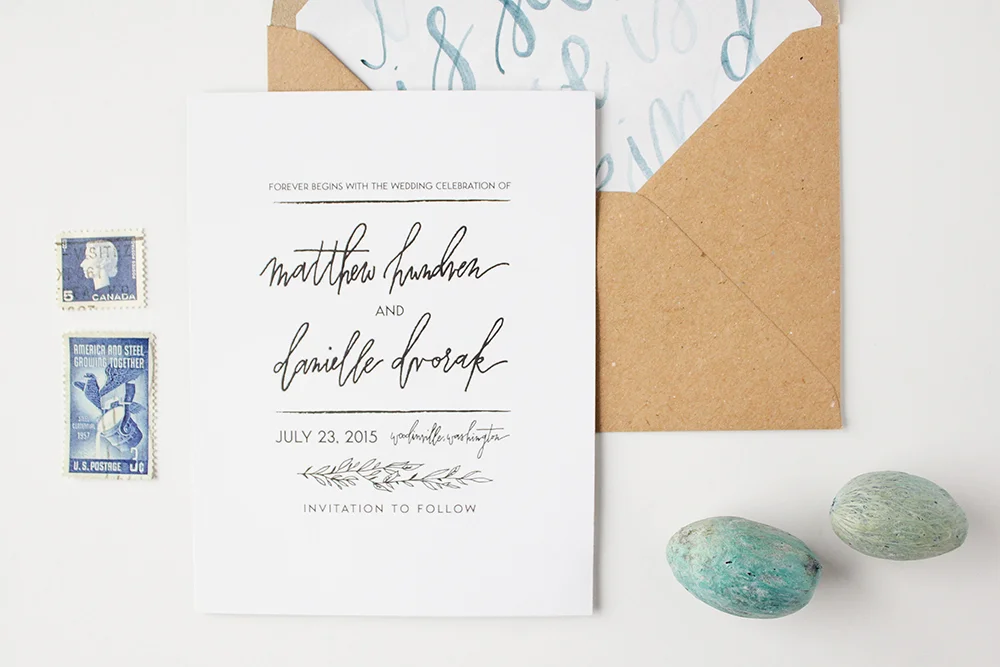 FOREVER BEGINS WITH THE WEDDING CELEBRATION OF
matthew hundven
AND
danielle dvorak
JULY 23, 2015 woodinville, washington
INVITATION TO FOLLOW
5 CANADA
AMERICA AND STEEL
GROWING TOGETHER
CENTENNIAL
1957
U.S. POSTAGE 3¢